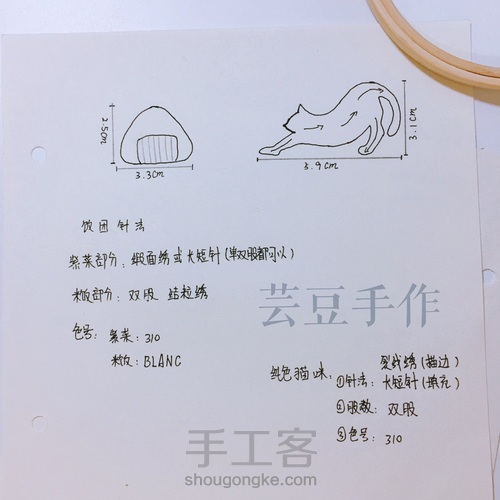 2.5cm
3.3cm
3.1cm
3.9cm
饭团针法
紫菜部分：缎面绣或长短针(单双股都可以)
米饭部分：双股 结粒绣
色号：紫菜：310
米饭：BLANC
芸豆手作
纯色猫咪：①针法：裂线绣(描边)
长短针(填充)
②股数：双股
③色号：310
手工客
shougongke.com